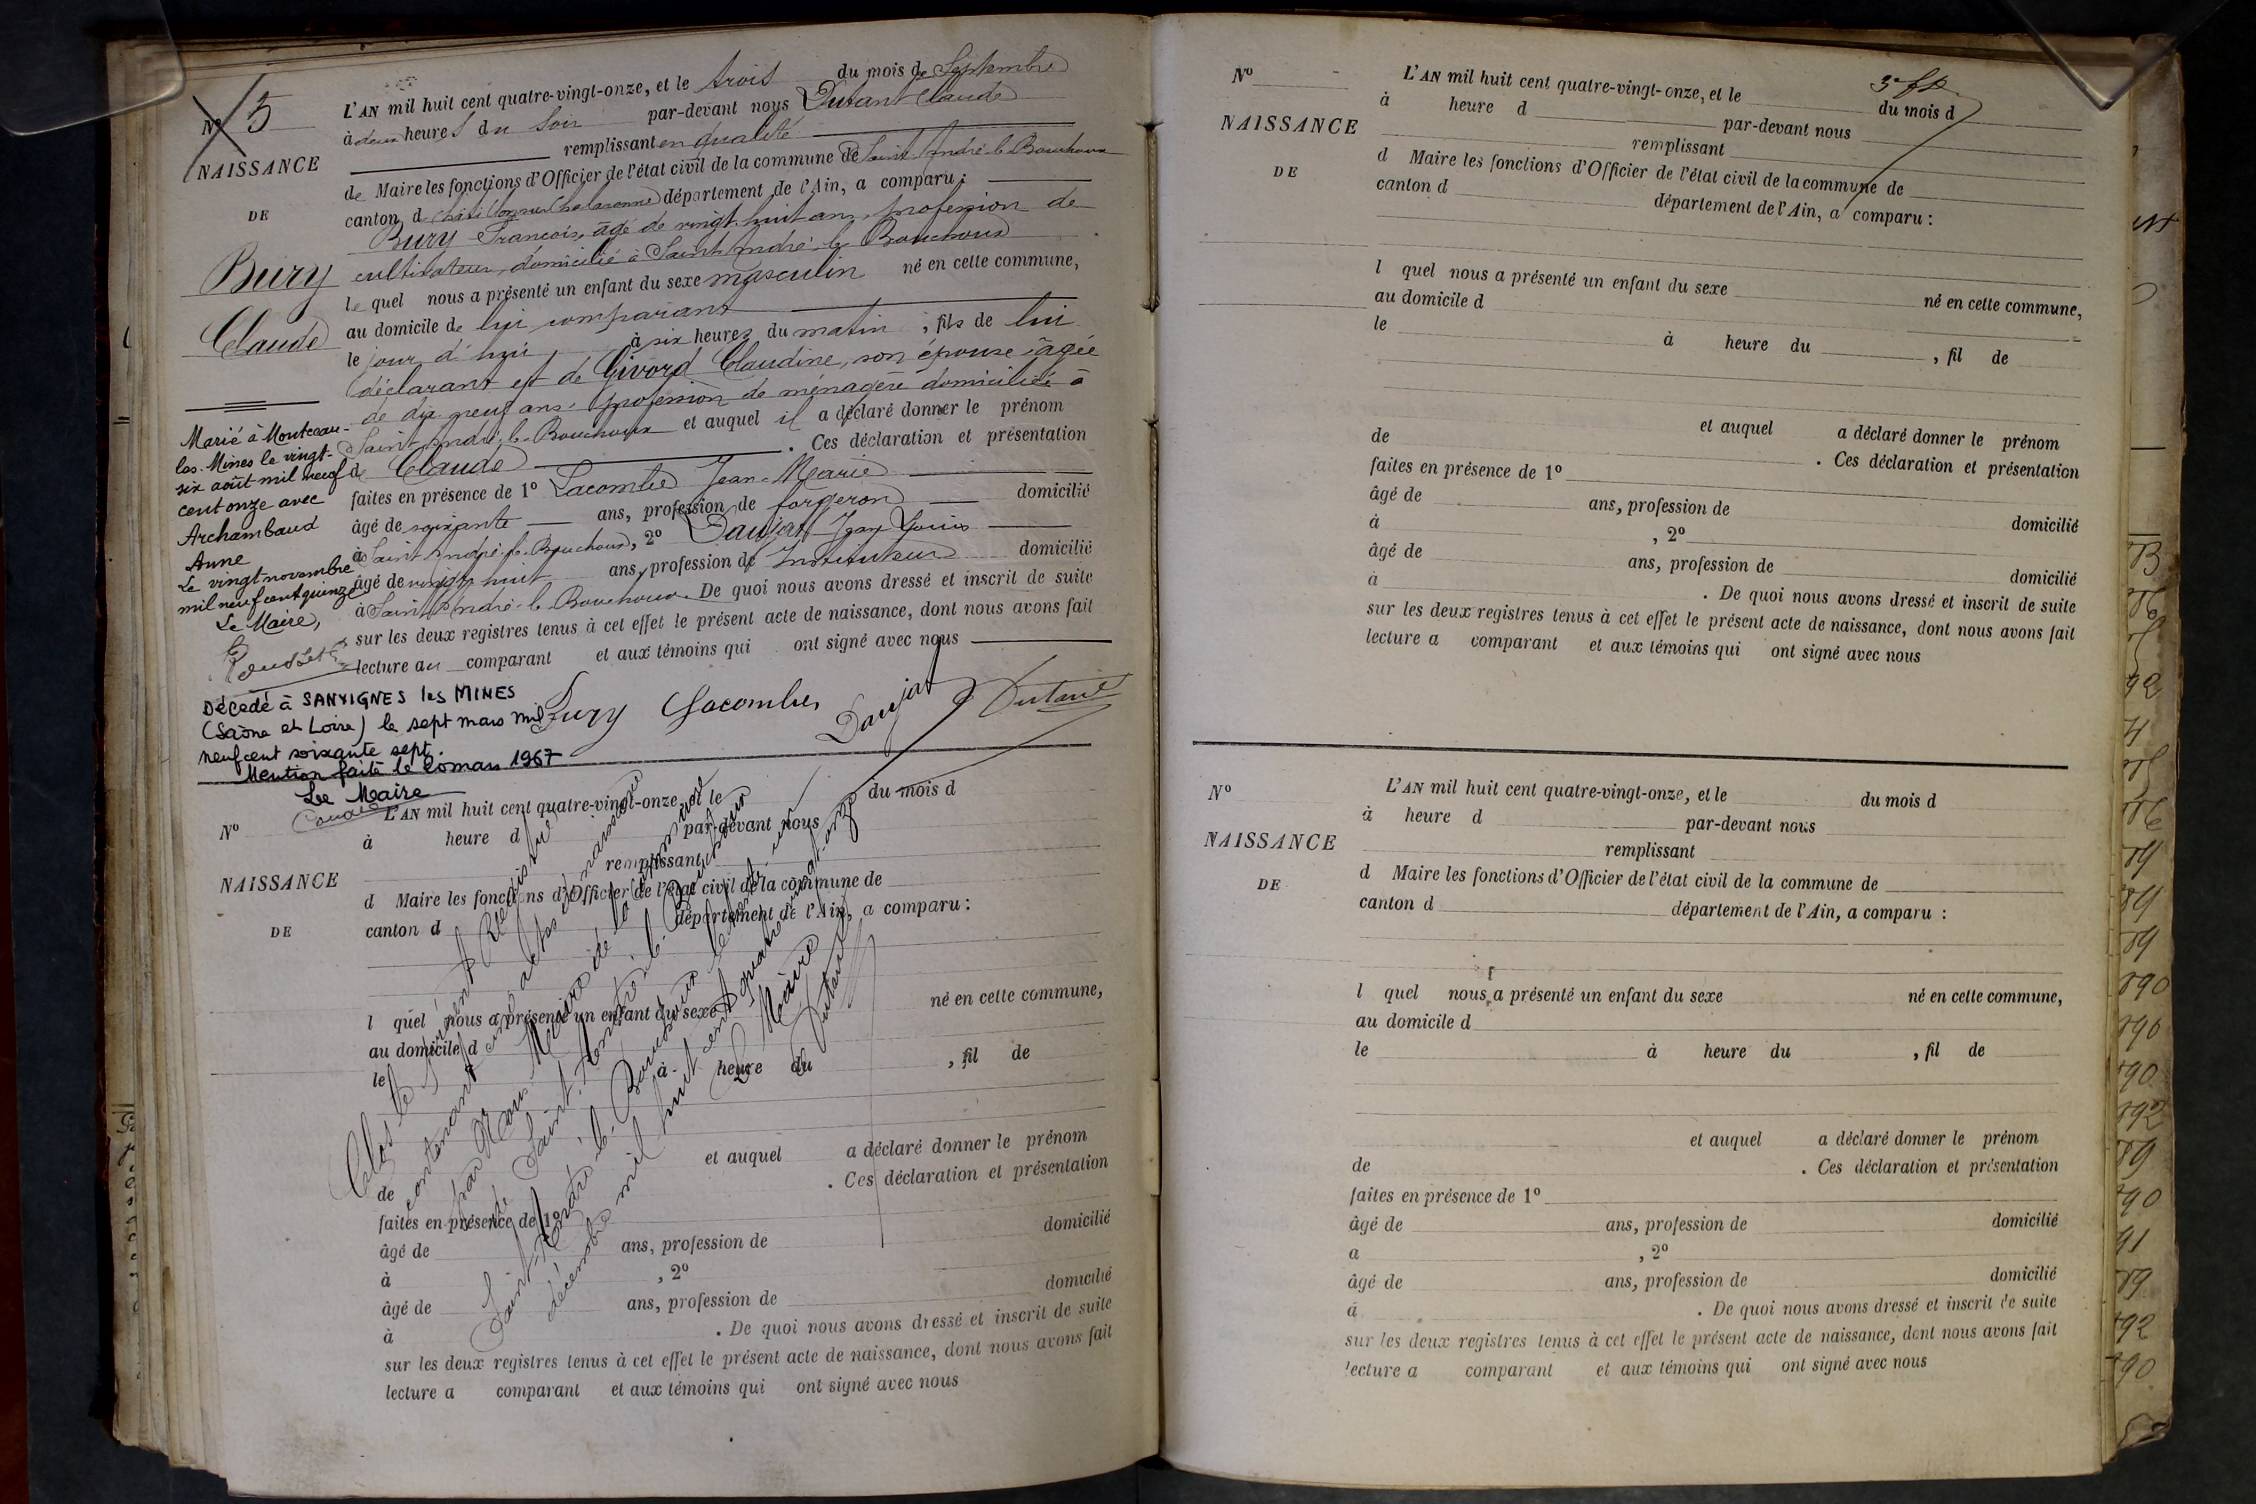 N° 5
NAISSANCE
DE
Bury
Claude
L'AN mil huit cent quatre-vingt-onze, et le trois du mois de Septembre
à deux heures du soir par-devant nous Dutant Claude
remplissant en qualité
de Maire les fonctions d'Officier de l'état civil de la commune de Saint André-le-Bouchoux
canton de Châtillon sur Chalaronne département de l'Ain, a comparu :
Bury François, âgé de vingt huit ans, profession de
cultivateur, domicilié à Saint André-le-Bouchoux
lequel nous a présenté un enfant du sexe masculin né en cette commune,
au domicile de lui comparant
le jour d'hui à six heures du matin ; fils de lui
déclarant et de Givord Claudine, son épouse âgée
de dix neuf ans, profession de ménagère domiciliée à
Saint André-le-Bouchoux et auquel il a déclaré donner le prénom
de Claude . Ces déclaration et présentation
faites en présence de 1° Lacombe Jean-Marie
âgé de soixante ans, profession de forgeron domicilié
à Saint André-le-Bouchoux, 2° Daujat Jean Louis
âgé de vingt huit ans, profession de Instituteur domicilié
à Saint André-le-Bouchoux. De quoi nous avons dressé et inscrit de suite
sur les deux registres tenus à cet effet le présent acte de naissance, dont nous avons fait
lecture au comparant et aux témoins qui ont signé avec nous
Bury Lacombe Daujat Dutant
Marié à Montceau-
les-Mines le vingt-
six août mil neuf
cent onze avec
Archambaud
Anne
Le vingt novembre
mil neuf cent quinze
Le Maire,
Décédé à SANVIGNES les MINES
(Saône et Loire) le sept mars mil
neuf cent soixante sept.
Mention faite le 20 mars 1967
Le Maire
N°
NAISSANCE
DE
L'AN mil huit cent quatre-vingt-onze, et le du mois d
à heure d par-devant nous
remplissant
d Maire les fonctions d'Officier de l'état civil de la commune de
canton d département de l'Ain, a comparu :
l quel nous a présenté un enfant du sexe né en cette commune,
au domicile d
le à heure du , fil de
et auquel a déclaré donner le prénom
de . Ces déclaration et présentation
faites en présence de 1°
âgé de ans, profession de domicilié
à , 2°
âgé de ans, profession de domicilié
à . De quoi nous avons dressé et inscrit de suite
sur les deux registres tenus à cet effet le présent acte de naissance, dont nous avons fait
lecture a comparant et aux témoins qui ont signé avec nous
Clos le présent Registre
contenant cinq actes de naissance
par Nous Maire de la commune
de Saint-André-le-Bouchoux
Saint-André-le-Bouchoux le trente-un
décembre mil huit cent quatre-vingt-onze
Le Maire
Dutant
N°
NAISSANCE
DE
L'AN mil huit cent quatre-vingt-onze, et le du mois d
à heure d par-devant nous
remplissant
d Maire les fonctions d'Officier de l'état civil de la commune de
canton d département de l'Ain, a comparu :
l quel nous a présenté un enfant du sexe né en cette commune,
au domicile d
le à heure du , fil de
et auquel a déclaré donner le prénom
de . Ces déclaration et présentation
faites en présence de 1°
âgé de ans, profession de domicilié
à , 2°
âgé de ans, profession de domicilié
à . De quoi nous avons dressé et inscrit de suite
sur les deux registres tenus à cet effet le présent acte de naissance, dont nous avons fait
lecture a comparant et aux témoins qui ont signé avec nous
N°
NAISSANCE
DE
L'AN mil huit cent quatre-vingt-onze, et le du mois d
à heure d par-devant nous
remplissant
d Maire les fonctions d'Officier de l'état civil de la commune de
canton d département de l'Ain, a comparu :
l quel nous a présenté un enfant du sexe né en cette commune,
au domicile d
le à heure du , fil de
et auquel a déclaré donner le prénom
de . Ces déclaration et présentation
faites en présence de 1°
âgé de ans, profession de domicilié
a , 2°
âgé de ans, profession de domicilié
à . De quoi nous avons dressé et inscrit de suite
sur les deux registres tenus à cet effet le présent acte de naissance, dont nous avons fait
lecture a comparant et aux témoins qui ont signé avec nous